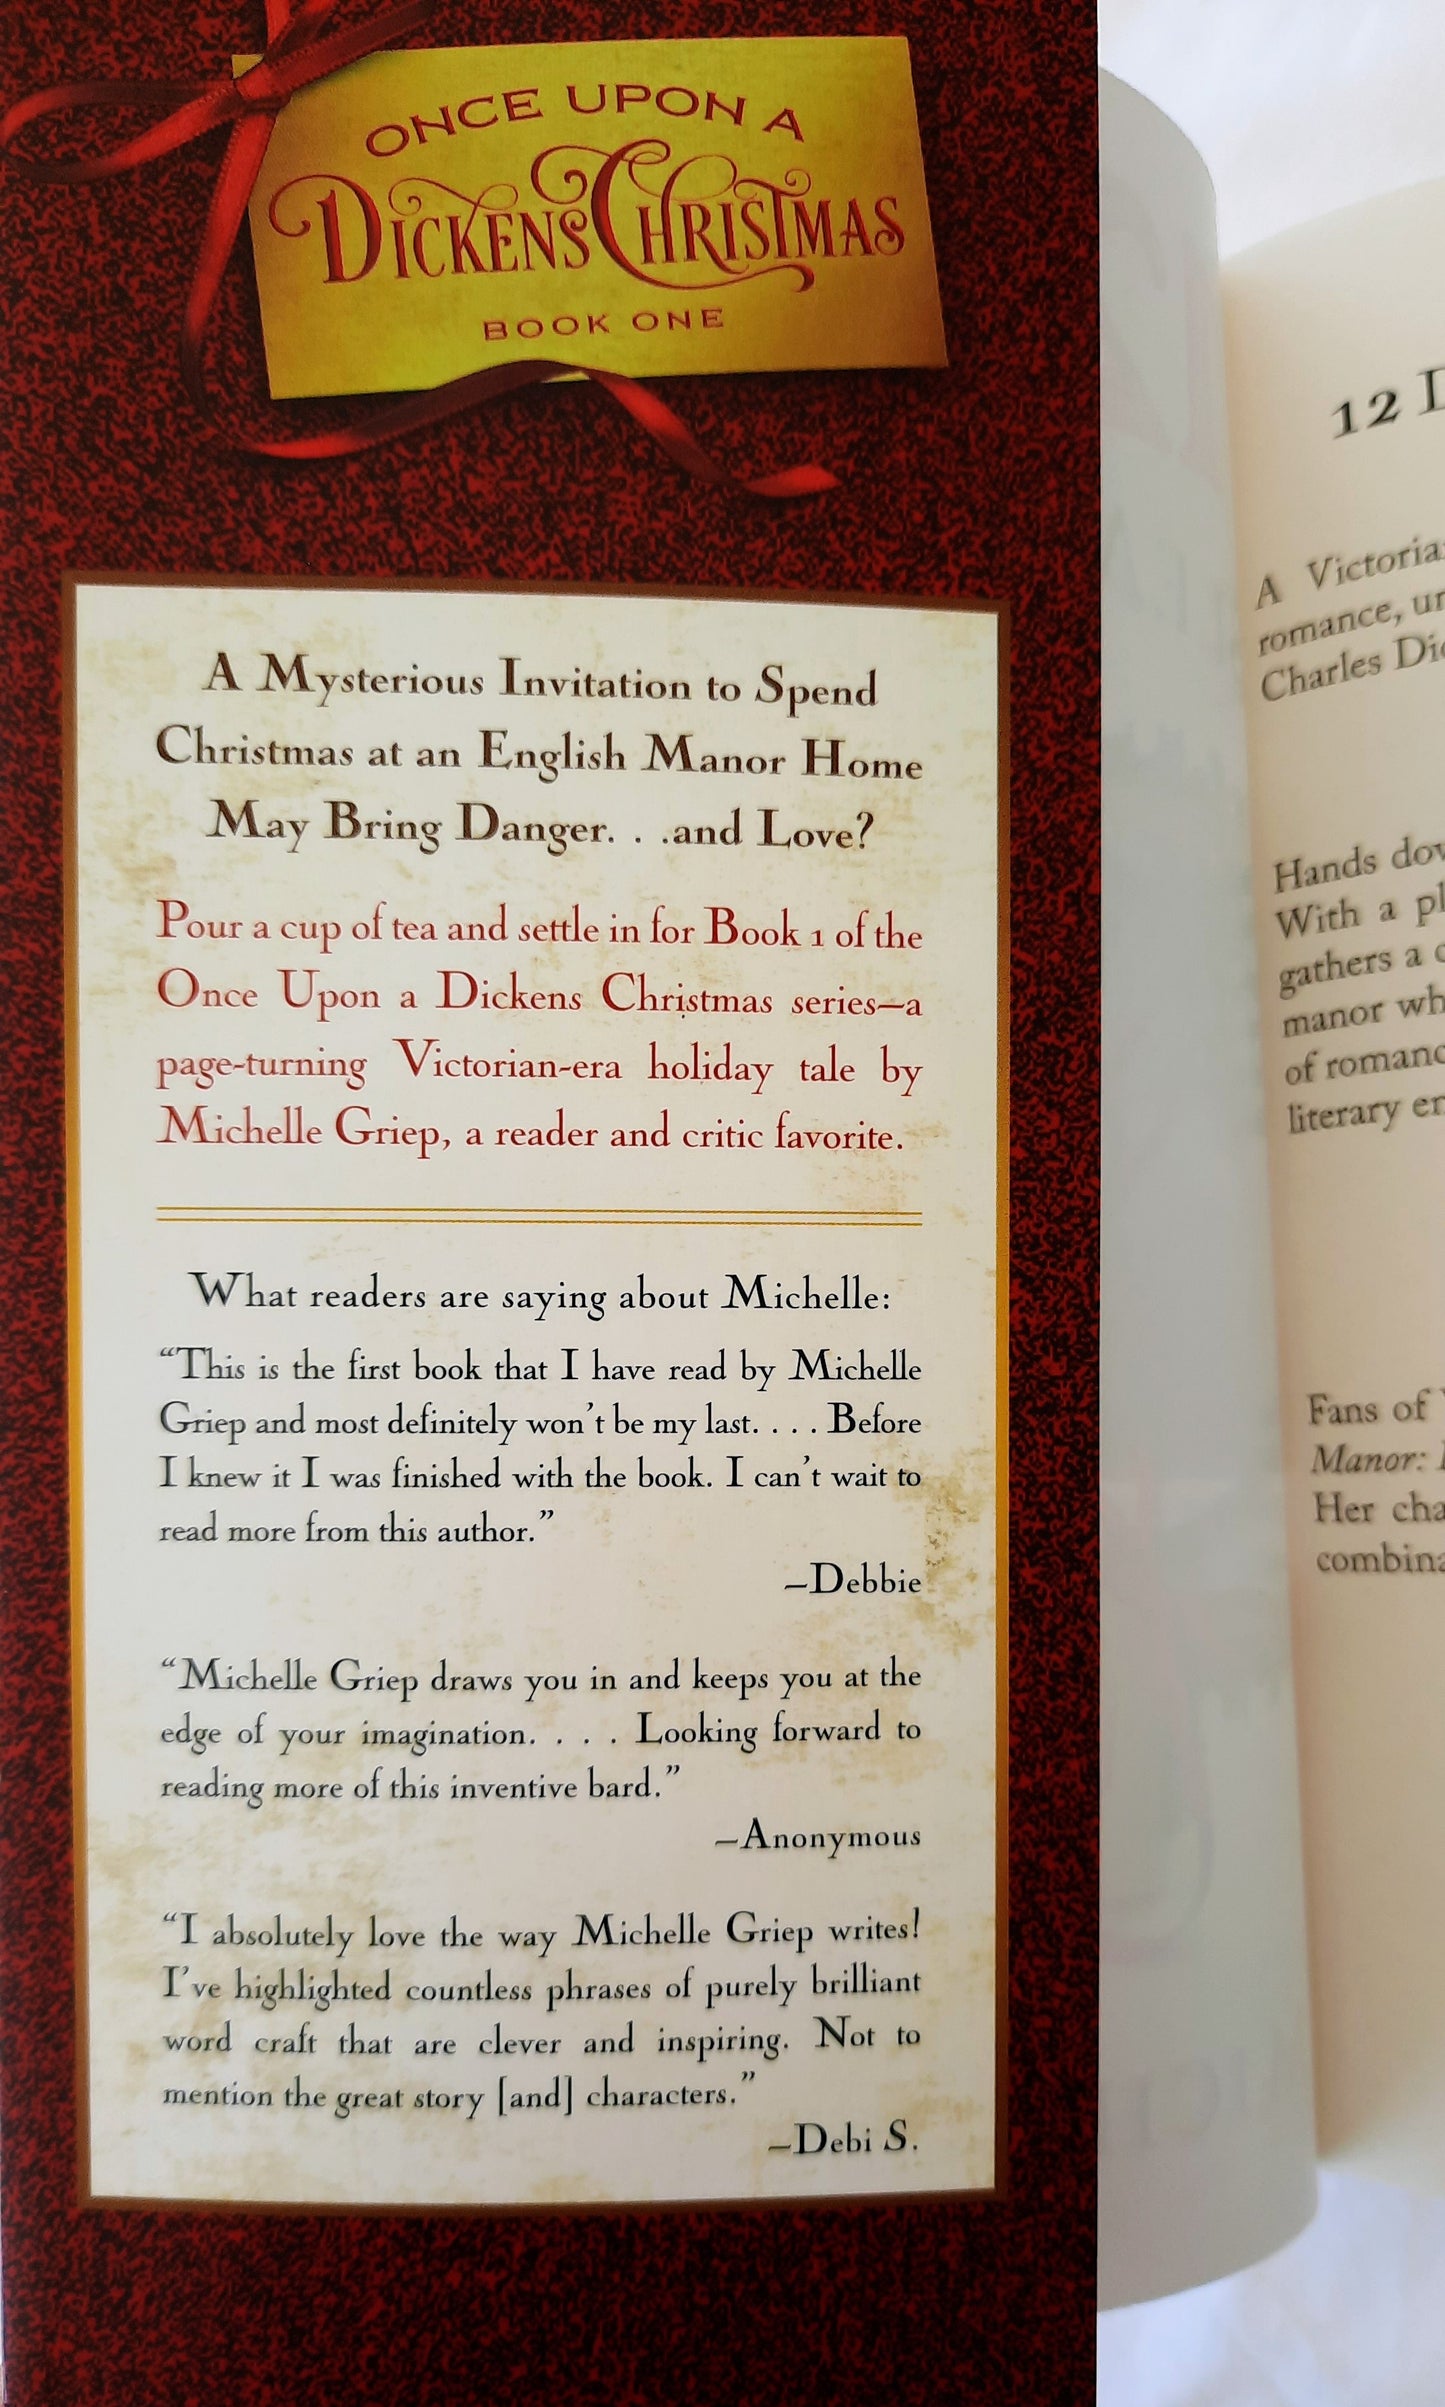 ONCE UPON A
DICKENS CHRISTMAS
BOOK ONE
A Mysterious Invitation to Spend
Christmas at an English Manor Home
May Bring Danger. . .and Love?
Pour a cup of tea and settle in for Book 1 of the
Once Upon a Dickens Christmas series—a
page-turning Victorian-era holiday tale by
Michelle Griep, a reader and critic favorite.
What readers are saying about Michelle:
“This is the first book that I have read by Michelle
Griep and most definitely won’t be my last. . . . Before
I knew it I was finished with the book. I can’t wait to
read more from this author.”
—Debbie
“Michelle Griep draws you in and keeps you at the
edge of your imagination. . . . Looking forward to
reading more of this inventive bard.”
—Anonymous
“I absolutely love the way Michelle Griep writes!
I’ve highlighted countless phrases of purely brilliant
word craft that are clever and inspiring. Not to
mention the great story [and] characters.”
—Debi S.
12
A
romance,
Charles
Hands
With a
gathers a
manor
of
literary
Fans of
Manor:
Her